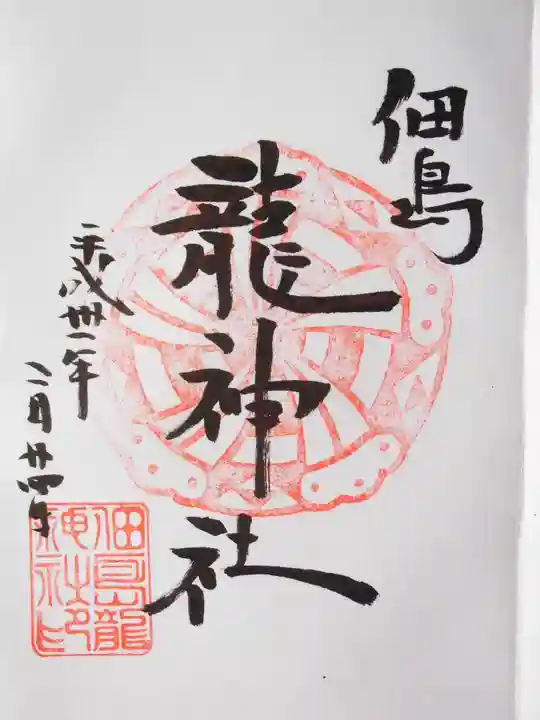 佃島
龍神社
平成卅一年
二月廿四日
佃島龍
神社之印